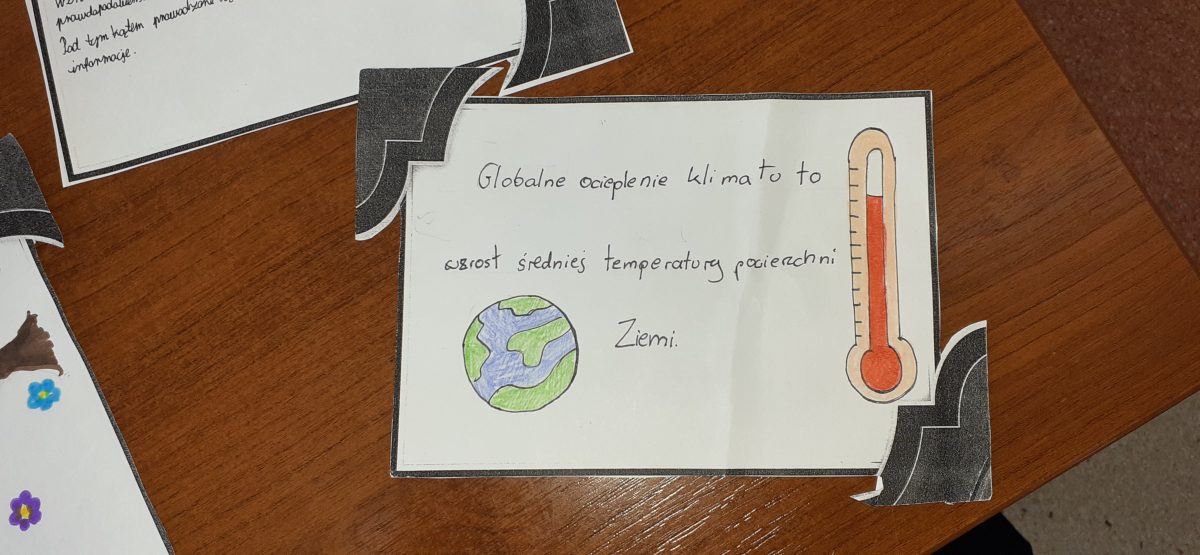 Pod tym kątem prowadzone
informacje.
Globalne ocieplenie klimatu to
wzrost średniej temperatury powierzchni
Ziemi.